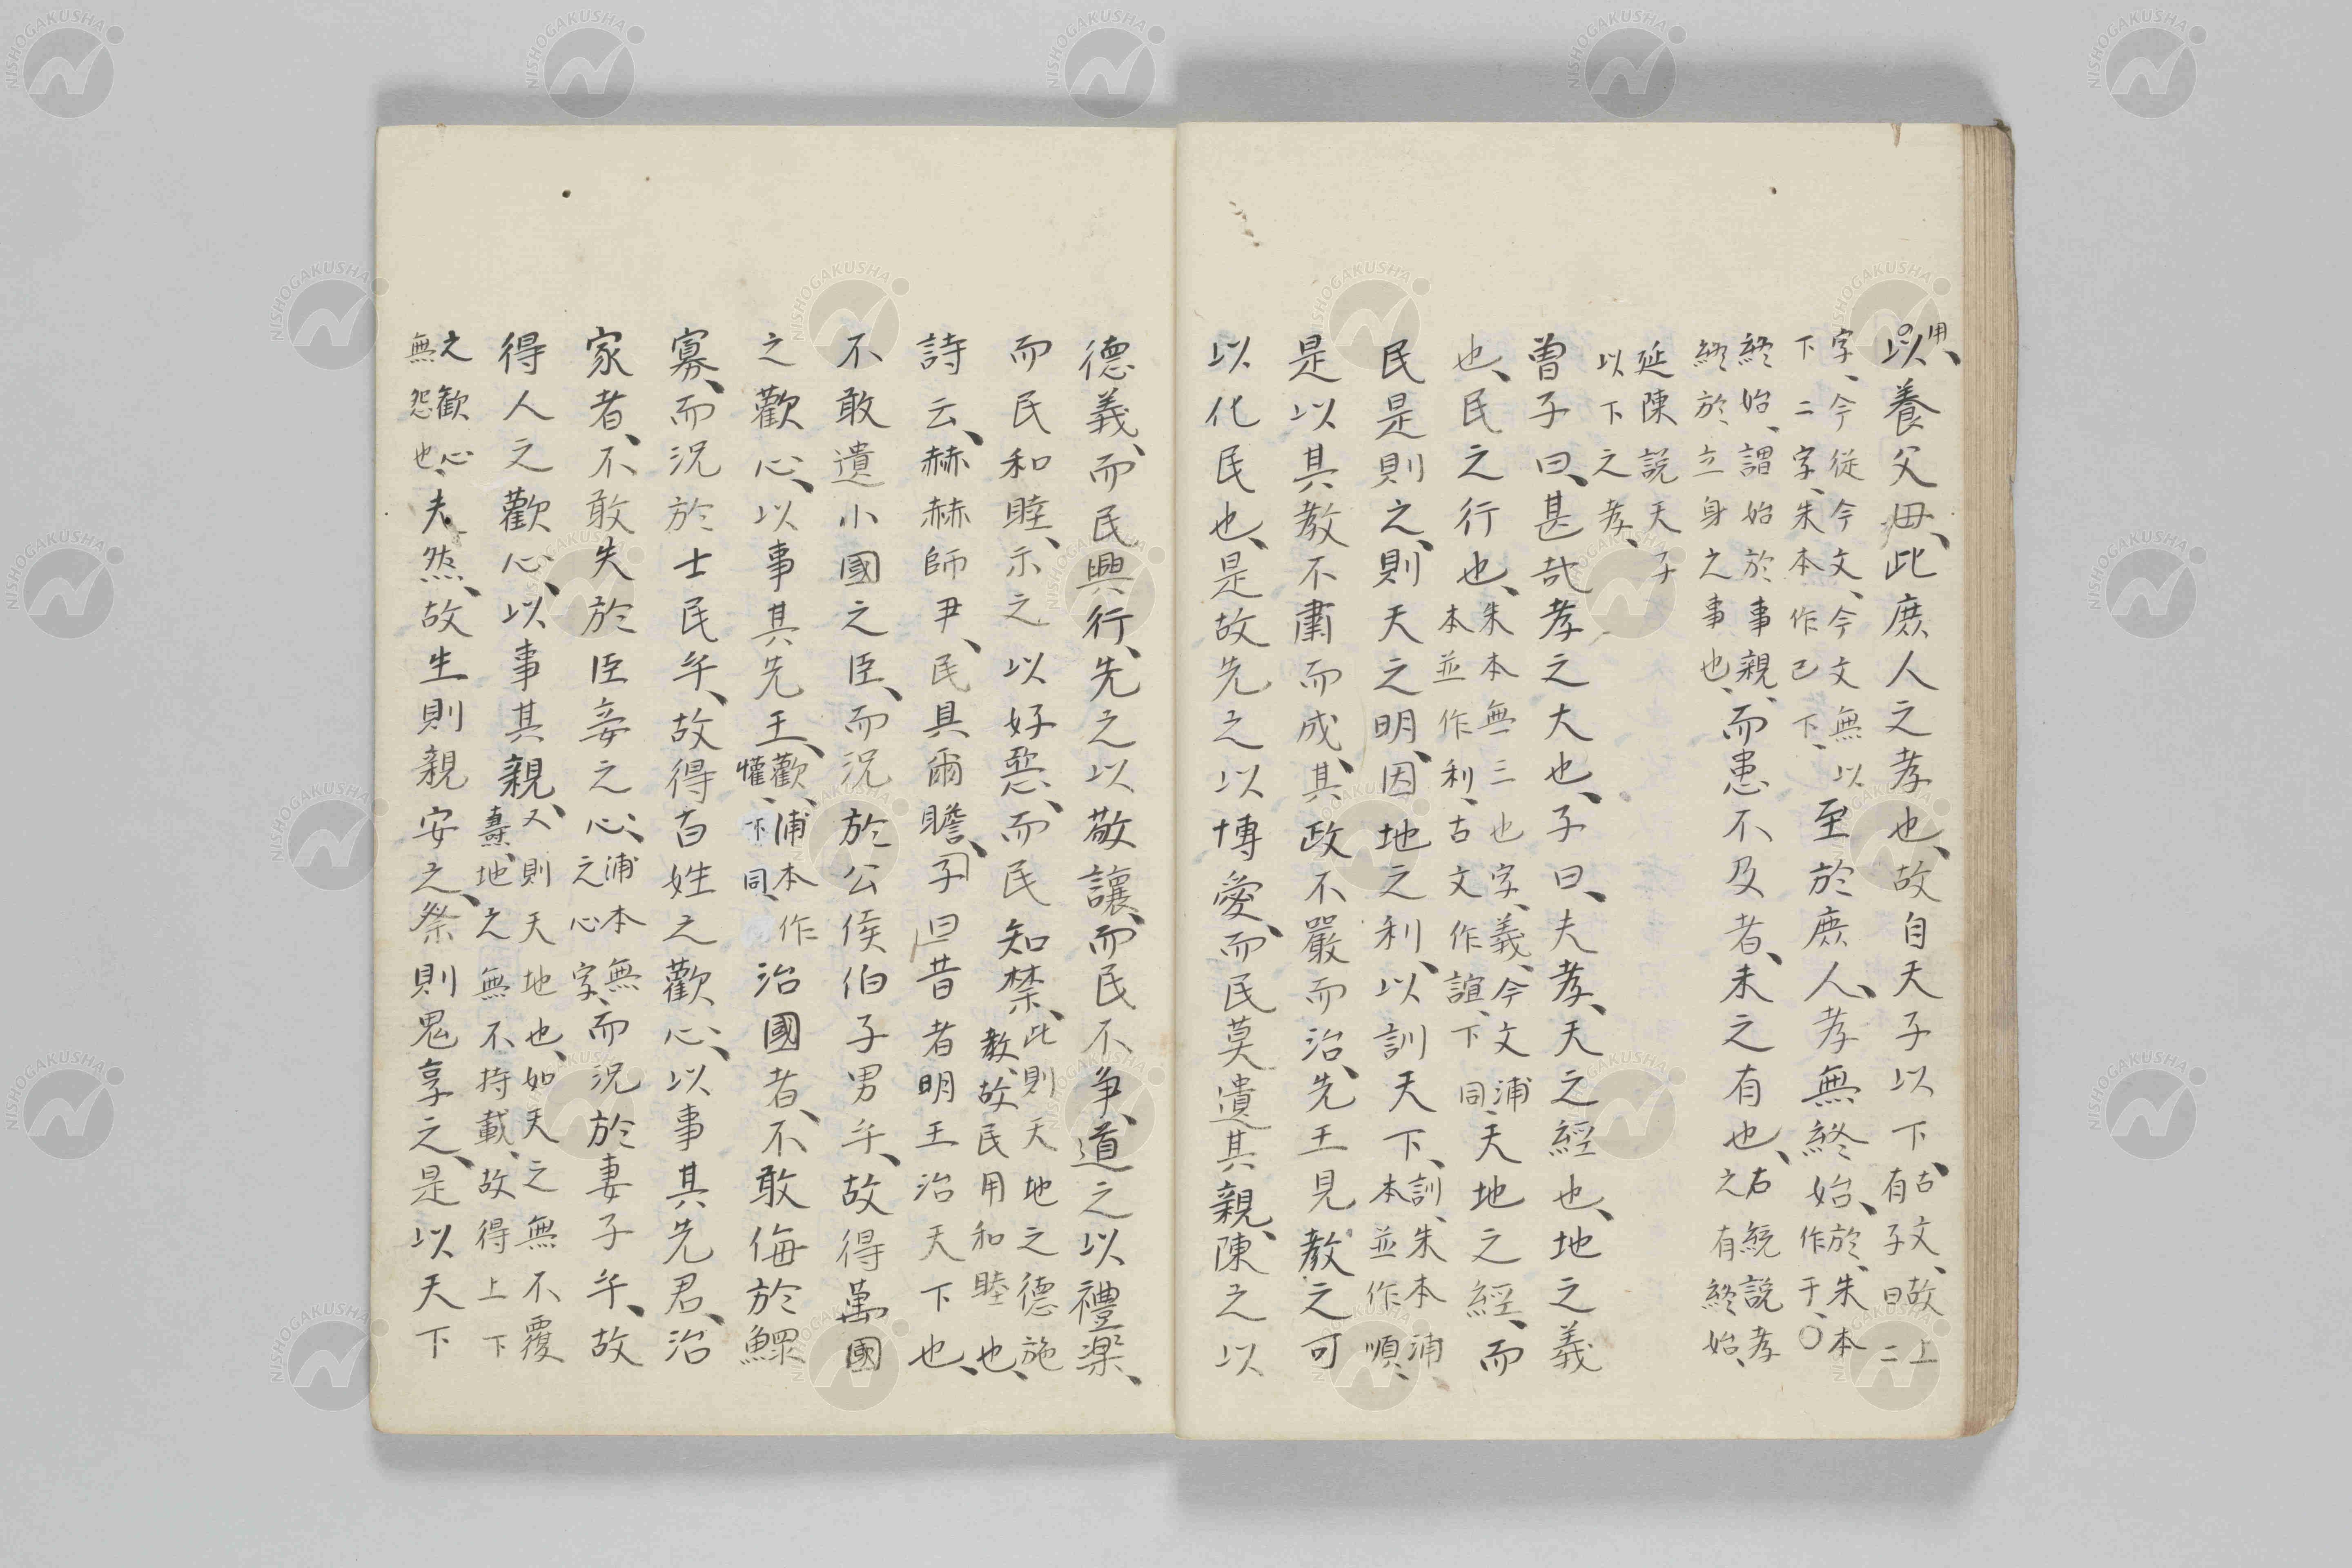 用、以養父母、此庶人之孝也、故自天子以下、古文、故上有子曰二
字、今從今文、今文無以下二字、朱本作已下、至於庶人、孝無終始、於、朱本作于、〇
終始、謂始於事親、終於立身之事也、而患不及者、未之有也、右統説孝之有終始、
延陳説天子以下之孝、
曽子曰、甚哉孝之大也、子曰、夫孝、天之經也、地之義
也、民之行也、朱本無三也字、義、今文浦本並作利、古文作誼、下同、天地之經、而
民是則之、則天之明、因地之利、以訓天下、訓、朱本浦本並作順、
是以其教不肅而成、其政不嚴而治、先王見教之可
以化民也、是故先之以博愛、而民莫遺其親、陳之以
德義、而民興行、先之以敬讓、而民不争、道之以禮楽、
而民和睦、示之以好惡、而民知禁、此則天地之德施教、故民用和睦也、
詩云、赫赫師尹、民具爾瞻、子曰昔者明王治天下也、
不敢遺小國之臣、而況於公侯伯子男乎、故得萬國
之歡心、以事其先王、歡、浦本作懽、下同、治國者、不敢侮於鰥
寡、而況於士民乎、故得百姓之歡心、以事其先君、治
家者、不敢失於臣妾之心、浦本無之心字、而況於妻子乎、故
得人之歡心、以事其親、又則天地也、如天之無不覆燾、地之無不持載、故得上下
之歡心無怨也、夫然、故生則親安之、祭則鬼享之、是以天下
NISHOGAKUSHA